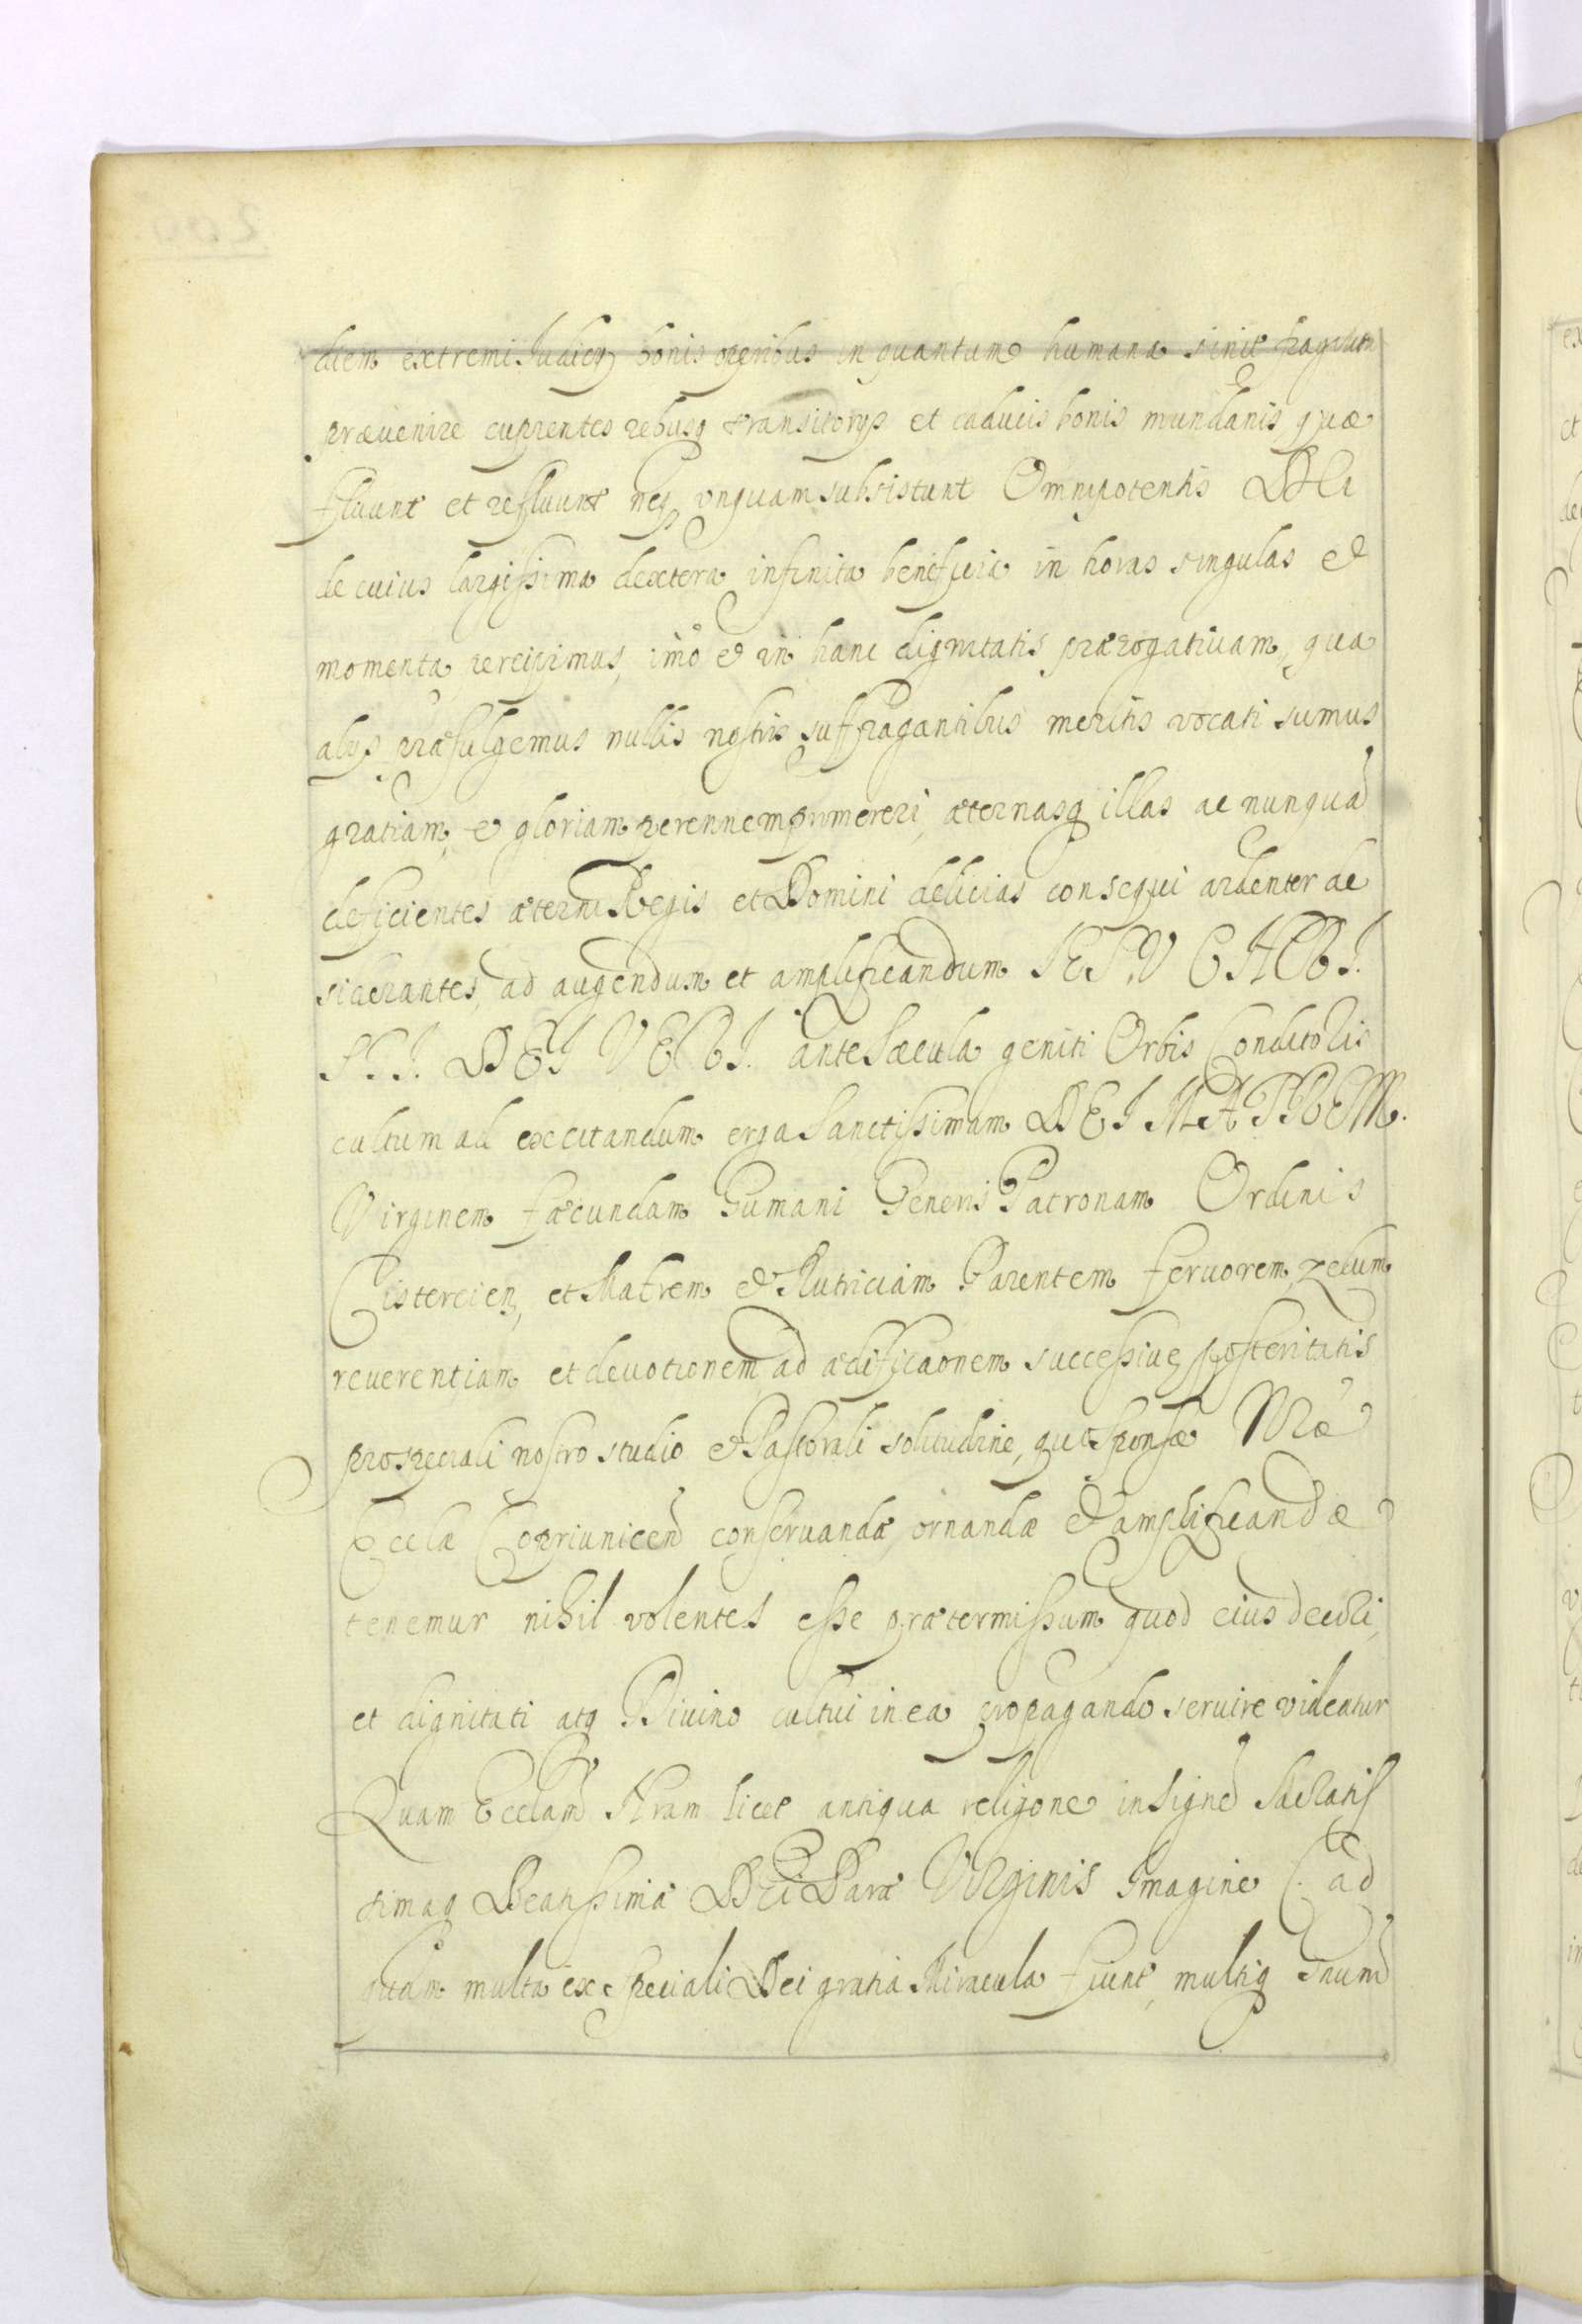 diem extremi Iudicÿ bonis operibus in quantum humana sinit fragilitas
præuenire cupientes rebusq transitorÿs et caducis bonis mundanis, quæ
fluunt et refluunt neq vnquam subsistunt Omnipotentis DEi
de cuius largissima dextera infinita beneficia in horas singulas et
momenta percipimus, imò et in hanc dignitatis prærogatiuam, qua
alÿs præfulgemus nullis nostris suffragantibus meritis vocati sumus
gratiam, et gloriam perennem promereri, æternasq illas ac nunquã
deficientes æterni Regis et Domini delicias consequi ardenter de
siderantes, ad augendum et amplificandum IESV CHRI.
STI. DEI VERI. ante Sæcula geniti Orbis Conditoris
cultum ad excitandum erga Sanctissimam DEI MATREM.
Virginem fæcundam Humani Generis Patronam Ordinis
Cistercien, et Matrem et Nutriciam Parentem feruorem zelum
reuerentiam et deuotionem, ad ædificaonem successiuę posteritatis
pro speciali nostro studio et Pastorali solitudine, qui Sponsæ Nræ
Ecclæ Coprivnicen conseruandæ, ornandæ et amplificandæ
tenemur nihil volentes esse prætermissum quod eius decori,
et dignitati atq Diuino cultui in ea propagando seruire videatur
Quam Ecclam Nram licet antiqua religione insignem Sacratis
simaq Beatissimæ DEi Paræ Virginis Imagine (: ad
quam multa ex speciali Dei gratia Miracula fiunt, multiq